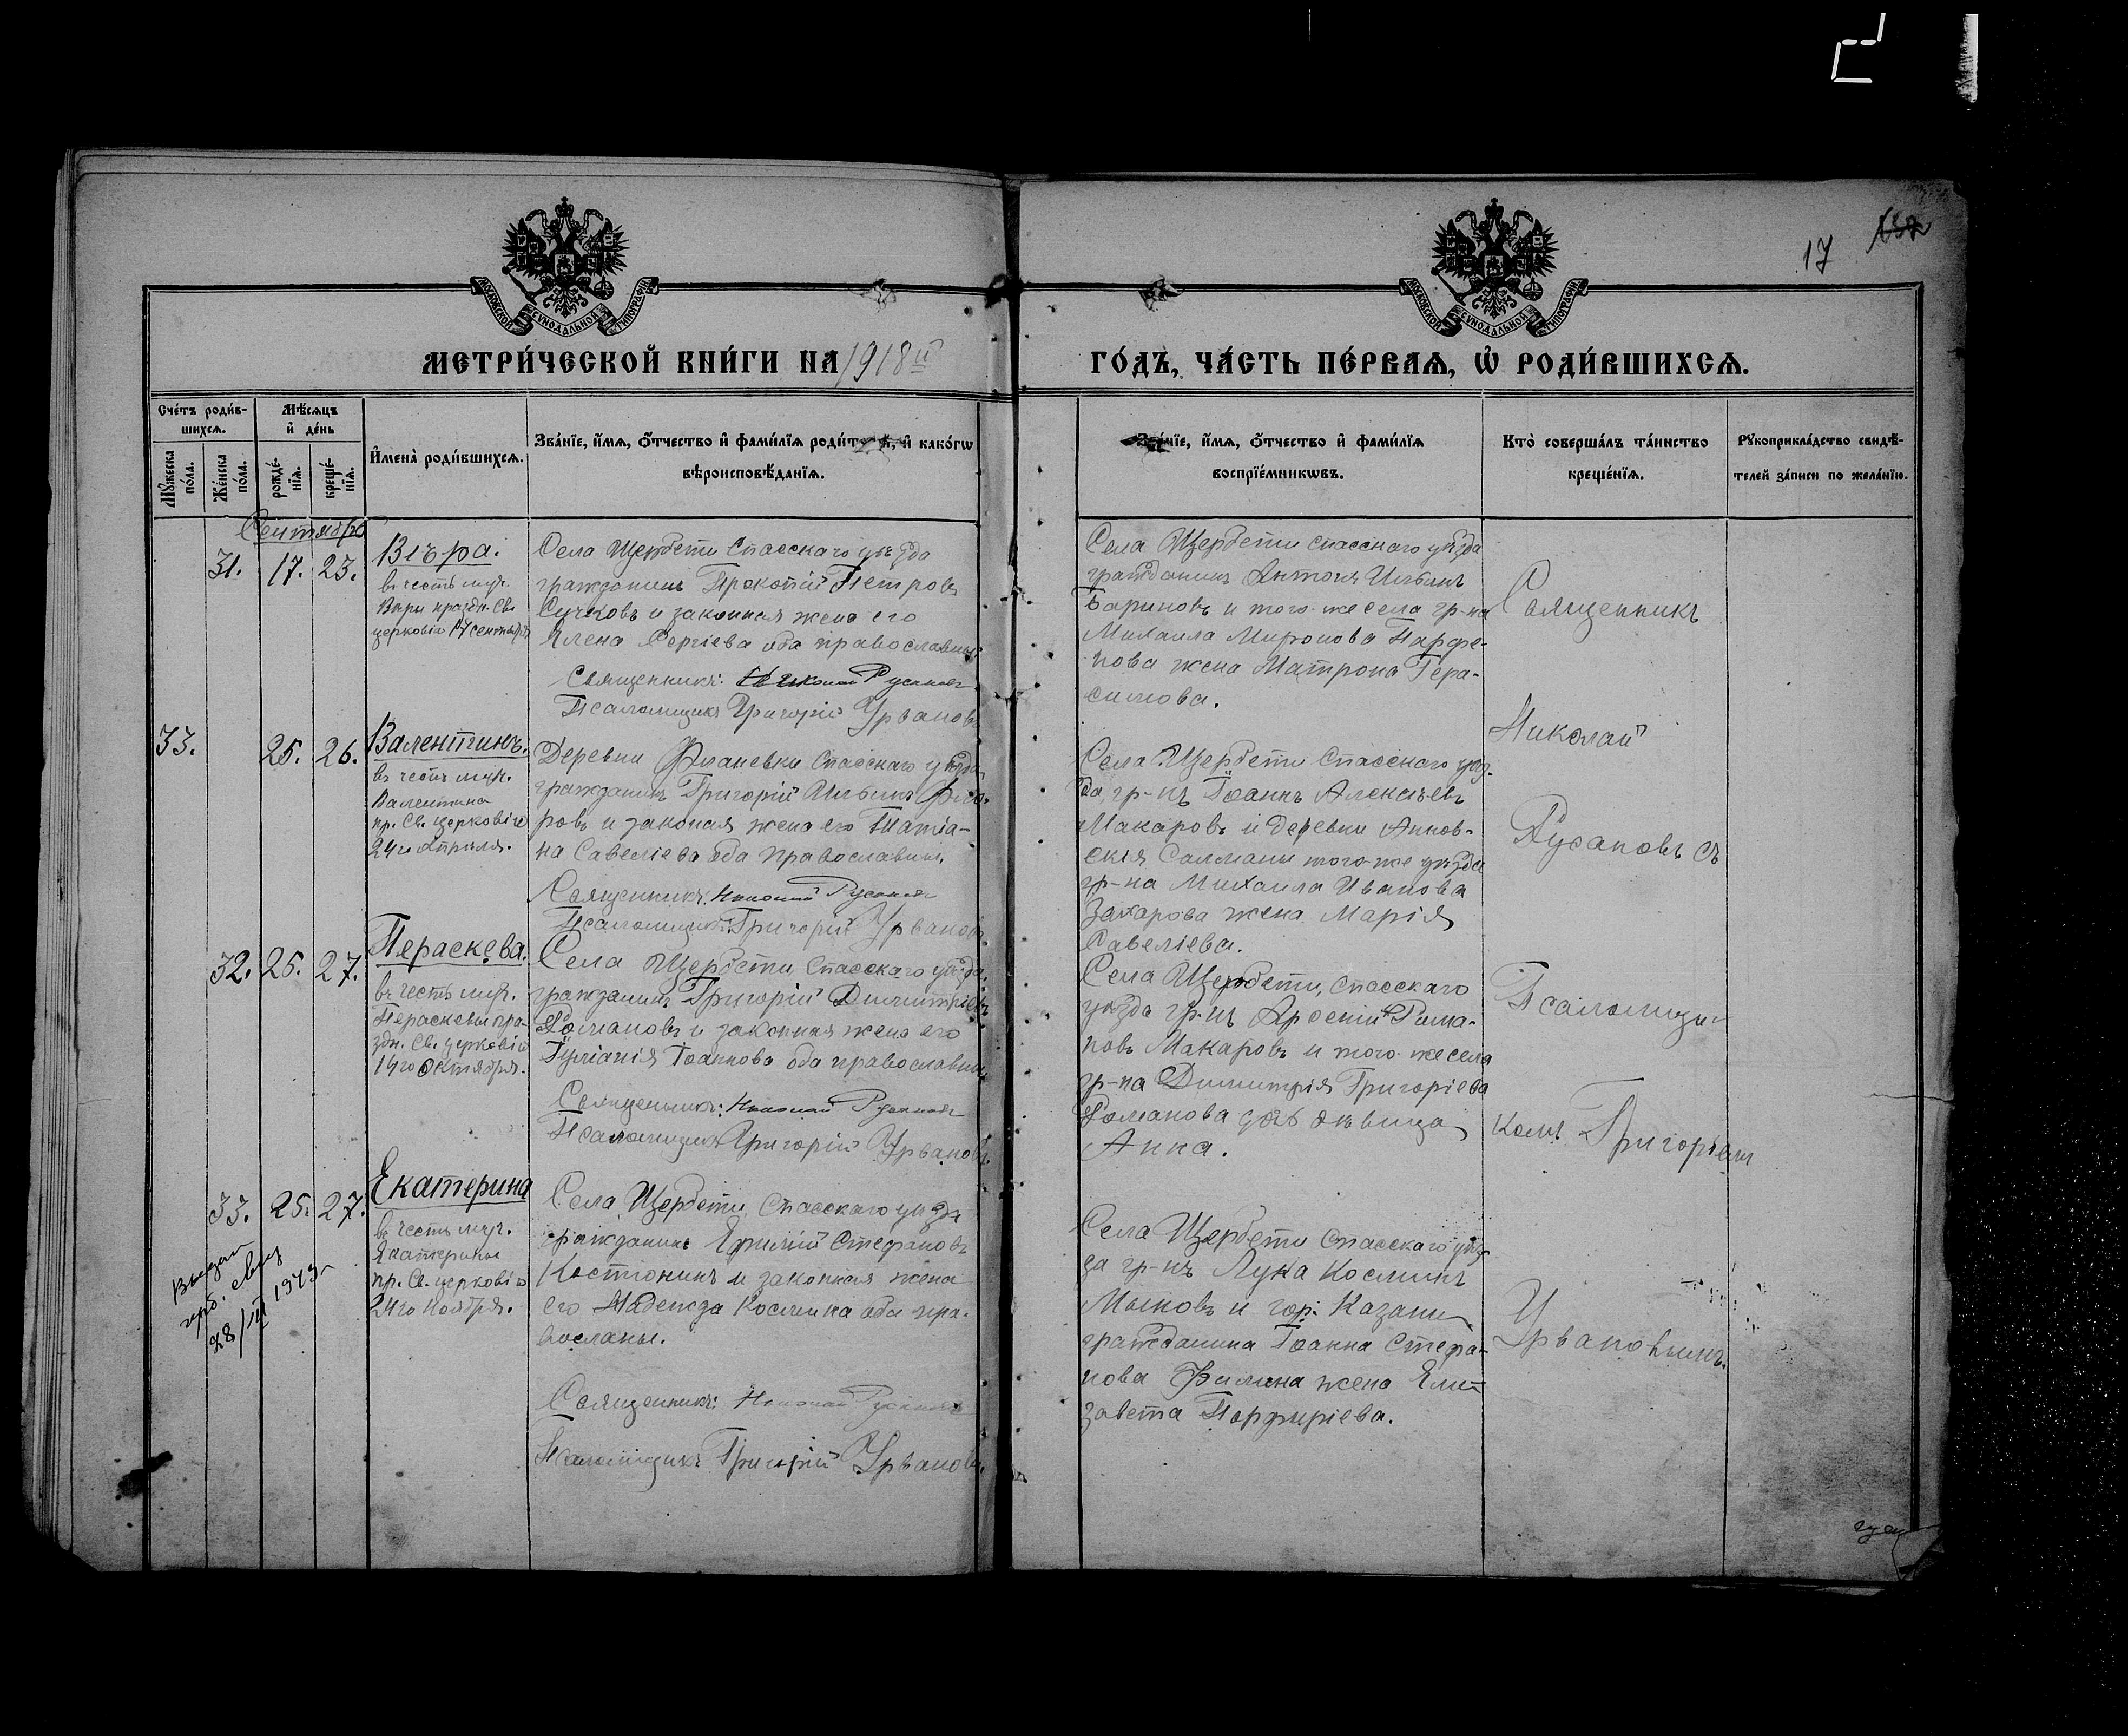 17
МЕТРИ́ЧЕСКОЙ КНИ́ГИ НА 1918й
ГО́ДЪ, ЧА́СТЬ ПЕ́РВАѦ, Ѡ҆ РОДИ́ВШИХСѦ.
МОСКОВСКОЙ СѴНОДАЛЬНОЙ ТИПОГРАФІИ
МОСКОВСКОЙ СѴНОДАЛЬНОЙ ТИПОГРАФІИ
Сче́тъ роди́в-
шихсѧ.
Мѣ́сѧцъ
и҆ де́нь
Мꙋ́жеска
по́ла.
Же́нска
по́ла.
рожде́-
нїѧ.
креще́-
нїѧ.
И҆мена̀ роди́вшихсѧ.
Зва́нїе, и҆́мѧ, ѻ҆́тчество и҆ фами́лїѧ роди́телей, и҆ како́гѡ
вѣроисповѣ́данїѧ.
Зва́нїе, и҆́мѧ, ѻ҆́тчество и҆ фами́лїѧ
воспрїе́мникѡвъ.
Кто̀ соверша́лъ та́инство
креще́нїѧ.
Рꙋкоприкла́дство свидѣ́-
телей за́писи по жела́нїю.
Сентябрь
31. 17. 23.
Вѣра.
въ честь муч.
Вѣры праздн. Св.
церковію 17 сентября
Села Щербети Спасскаго уѣзда
гражданинъ Прокопій Петровъ
Сучковъ и законная жена его
Елена Сергіева оба православны
Священникъ: Николай Русановъ
Псаломщикъ Григорій Урвановъ
Села Щербети Спасскаго уѣзда
гражданинъ Антоній Ильинъ
Бариновъ и того-же села гр-на
Михаила Миронова Парфе-
нова жена Матрона Гера-
симова.
33. 25. 26.
Валентинъ.
въ честь муч.
Валентина
пр. Св. церковію
24го Апрѣля.
Деревни Спасскаго уѣзда
гражданинъ Григорій Ильинъ
ровъ и законая жена его Татіа-
на Савеліева оба православны
Священникъ: Николай Русановъ
Псаломщикъ: Григорій Урвановъ
Села Щербети Спасскаго уѣз-
да, гр-нъ Іоаннъ Алексѣевъ
Макаровъ и деревни Аннов-
скія Салманы того-же уѣзда
гр-на Михаила Иванова
Захарова жена Марія
Савеліева.
32. 25. 27.
Параскева.
въ честь муч.
Параскевы пра-
здн. Св. церковію
14го Октября.
Села Щербети, Спасскаго уѣзда,
гражданинъ Григорій Димитріевъ
Романовъ и законная жена его
Іуліанія Іоаннова оба православны
Священникъ: Николай Русановъ
Псаломщикъ Григорій Урвановъ
Села Щербети, Спасскаго
уѣзда гр-нъ Рома-
новъ Макаровъ и того-же села
гр-на Димитрія Григоріева
Романова дочь дѣвица
Анна.
33. 25. 27.
Екатерина
въ честь муч.
Екатерины
пр. Св. церковію
24го Ноября.
Выдан
28/III 1943
Села Щербети, Спасскаго уѣзда
гражданинъ Ефимій Стефановъ
Костюнинъ и законная жена
его Надежда Космина оба пра-
вославны.
Священникъ: Николай Русановъ
Псаломщикъ Григорій Урвановъ
Села Щербети Спасскаго уѣз-
да гр-нъ Лука Косминъ
и гор. Казани
гражданина Іоанна Стефа-
нова Филина жена Ели-
завета Порфиріева.
Священникъ
Николай
Русановъ съ
Псаломщи-
комъ Григоріемъ
Урвановымъ.